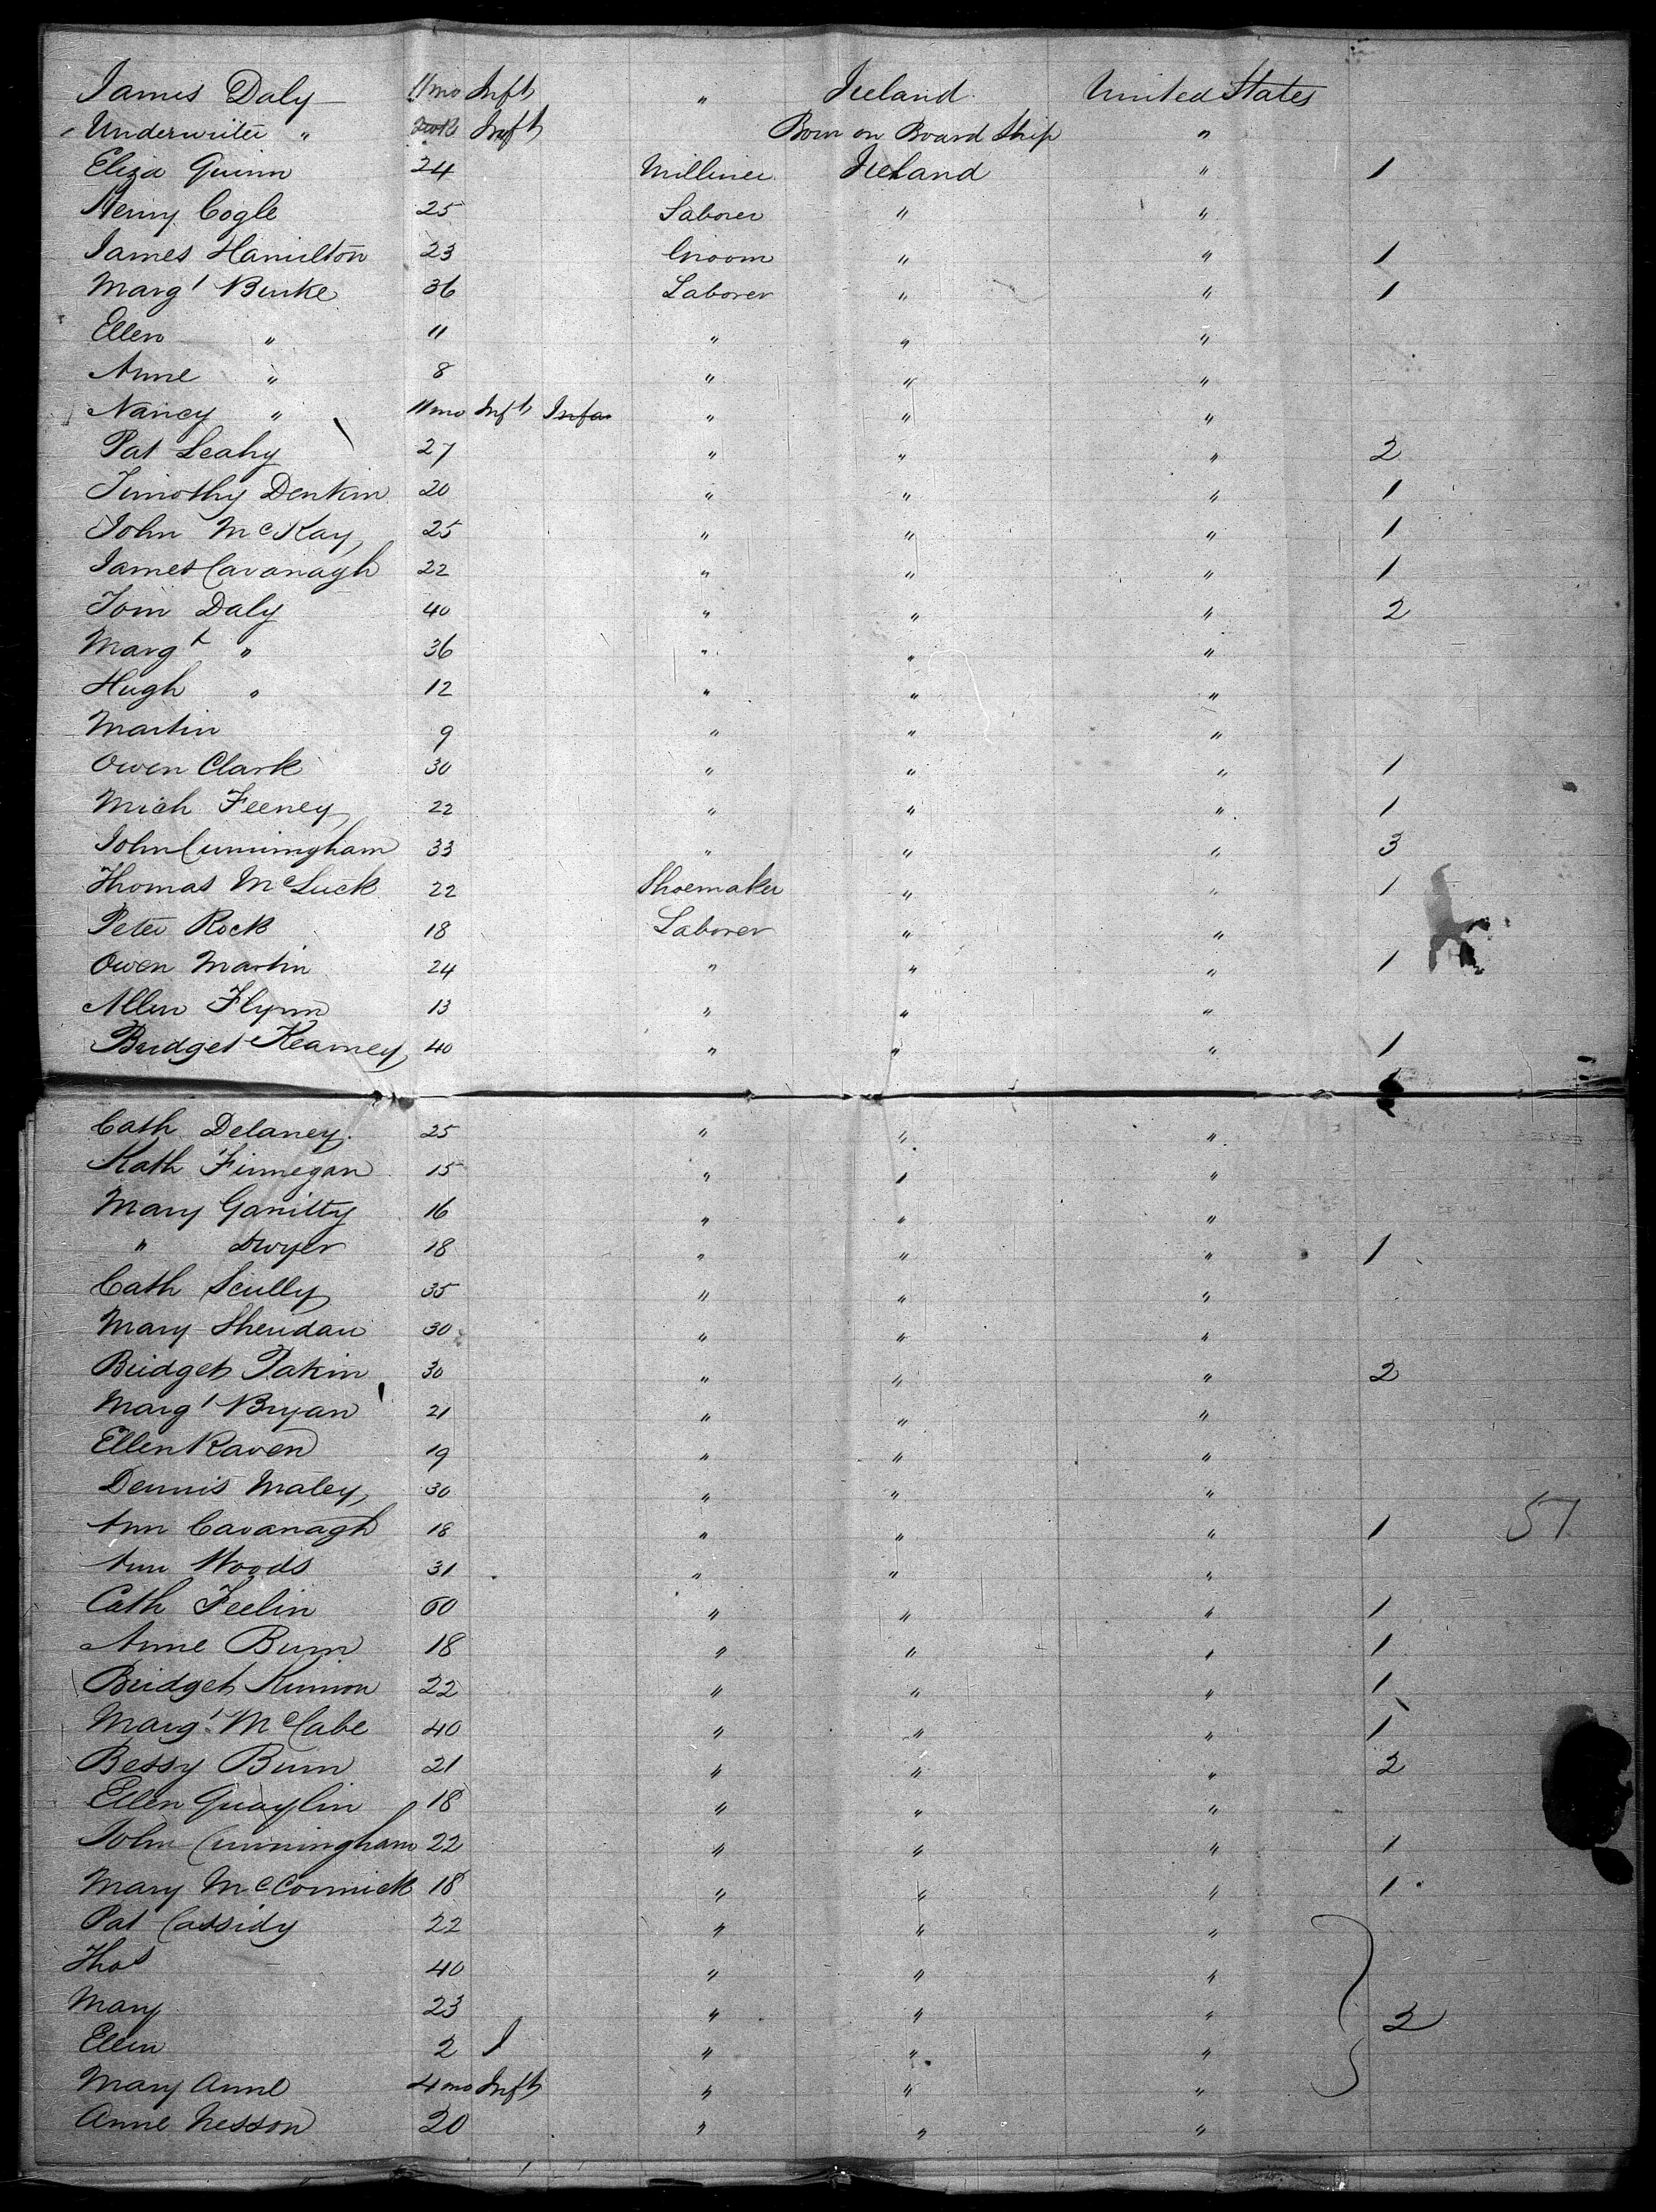 James Daly 11 mo Inft " Ireland United States
Underwriter " Inft Born on Board Ship "
Eliza Quinn 24 Milliner Ireland " 1
Henry Cogle 25 Laborer " "
James Hamilton 23 Groom " " 1
Margt Burke 36 Laborer " " 1
Ellen " 11 " " "
Anne " 8 " " "
Nancy " 11 mo Inft Infa " " "
Pat Leahy 27 " " " 2
Timothy Denkin 20 " " " 1
John McKay 25 " " " 1
James Cavanagh 22 " " " 1
Tom Daly 40 " " " 2
Margt " 36 " " "
Hugh " 12 " " "
Martin 9 " " "
Owen Clark 30 " " " 1
Mich Feeney 22 " " " 1
John Cunningham 33 " " " 3
Thomas McLuck 22 Shoemaker " " 1
Peter Rock 18 Laborer " "
Owen Martin 24 " " " 1
Allen Flynn 13 " " "
Bridget Kearney 40 " " " 1
Cath Delaney 25 " " "
Kath Finnegan 15 " " "
Mary Ganitty 16 " " "
" Dwyer 18 " " " 1
Cath Scully 35 " " "
Mary Sheridan 30 " " "
Bridget Pakin 30 " " " 2
Margt Bryan 21 " " "
Ellen Raven 19 " " "
Dennis Maley 30 " " "
Ann Cavanagh 18 " " " 1 51
Ann Woods 31 " " "
Cath Feelin 60 " " " 1
Anne Burn 18 " " " 1
Bridget Kinnon 22 " " " 1
Margt McCabe 40 " " " 1
Bessy Burn 21 " " " 2
Ellen Quaylin 18 " " "
John Cunningham 22 " " " 1
Mary McCormick 18 " " " 1
Pat Cassidy 22 " " "
Thos 40 " " "
Mary 23 " " " 2
Ellen 2 I " " "
Mary Anne 4 mo Inft " " "
Anne Nesson 20 " " "